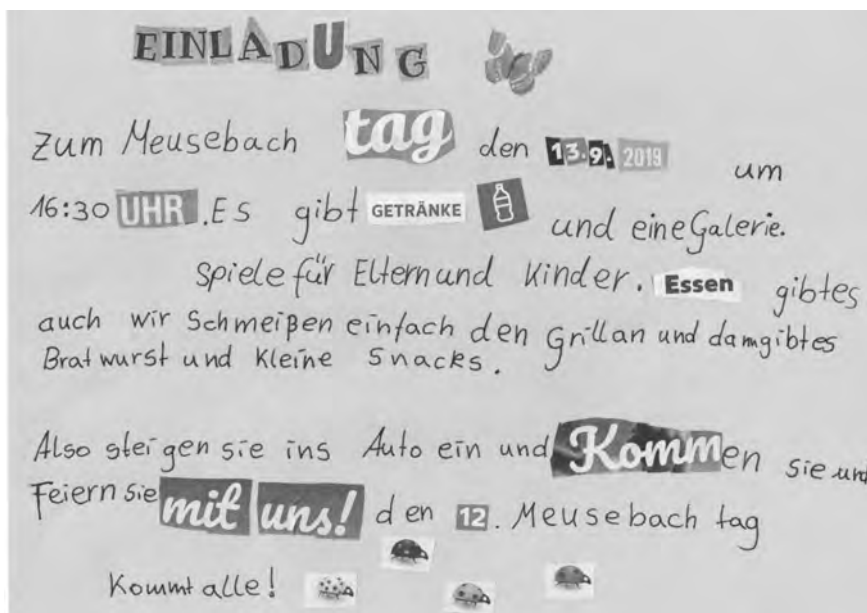 EINLADUNG
Zum Meusebach tag den 13.9. 2019 um
16:30 UHR. Es gibt GETRÄNKE und eine Galerie.
Spiele für Eltern und Kinder. Essen gibtes
auch wir Schmeißen einfach den Grillan und damgibtes
Bratwurst und Kleine Snacks.
Also steigen sie ins Auto ein und Kommen sie und
Feiern sie mit uns! den 12. Meusebach tag
Kommt alle!